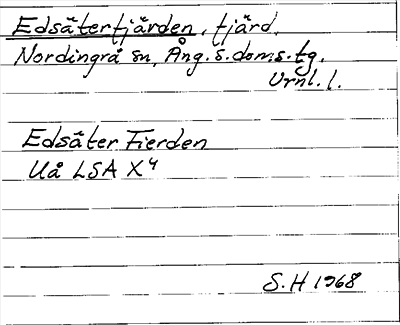 Edsäterfjärden, fjärd.
Nordingrå sn, Ång. s. doms. tg.
Vrnl. l.
Edsäter Fierden
Uå LSA X4
S.H 1968